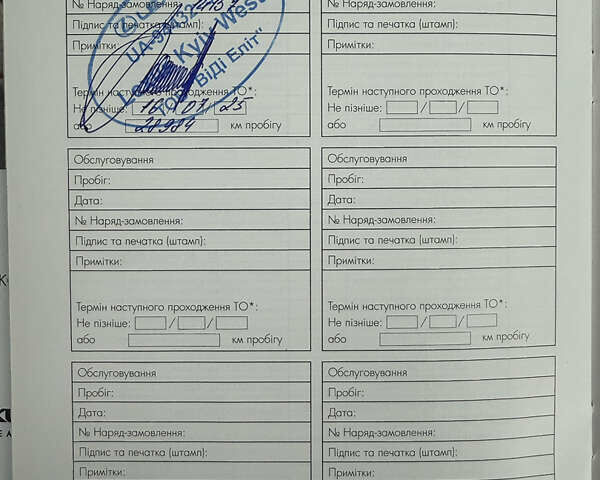 № Наряд-замовлення:
Підпис та печатка (штамп):
Примітки:
Термін наступного проходження ТО*:
Не пізніше: 16 / 07 / 25
або 28984 км пробігу
Kyiv West
ТОВ "ВіДі Еліт"
№ Наряд-замовлення:
Підпис та печатка (штамп):
Примітки:
Термін наступного проходження ТО*:
Не пізніше: / /
або км пробігу
Обслуговування
Пробіг:
Дата:
№ Наряд-замовлення:
Підпис та печатка (штамп):
Примітки:
Термін наступного проходження ТО*:
Не пізніше: / /
або км пробігу
Обслуговування
Пробіг:
Дата:
№ Наряд-замовлення:
Підпис та печатка (штамп):
Примітки:
Термін наступного проходження ТО*:
Не пізніше: / /
або км пробігу
Обслуговування
Пробіг:
Дата:
№ Наряд-замовлення:
Підпис та печатка (штамп):
Примітки:
Обслуговування
Пробіг:
Дата:
№ Наряд-замовлення:
Підпис та печатка (штамп):
Примітки: